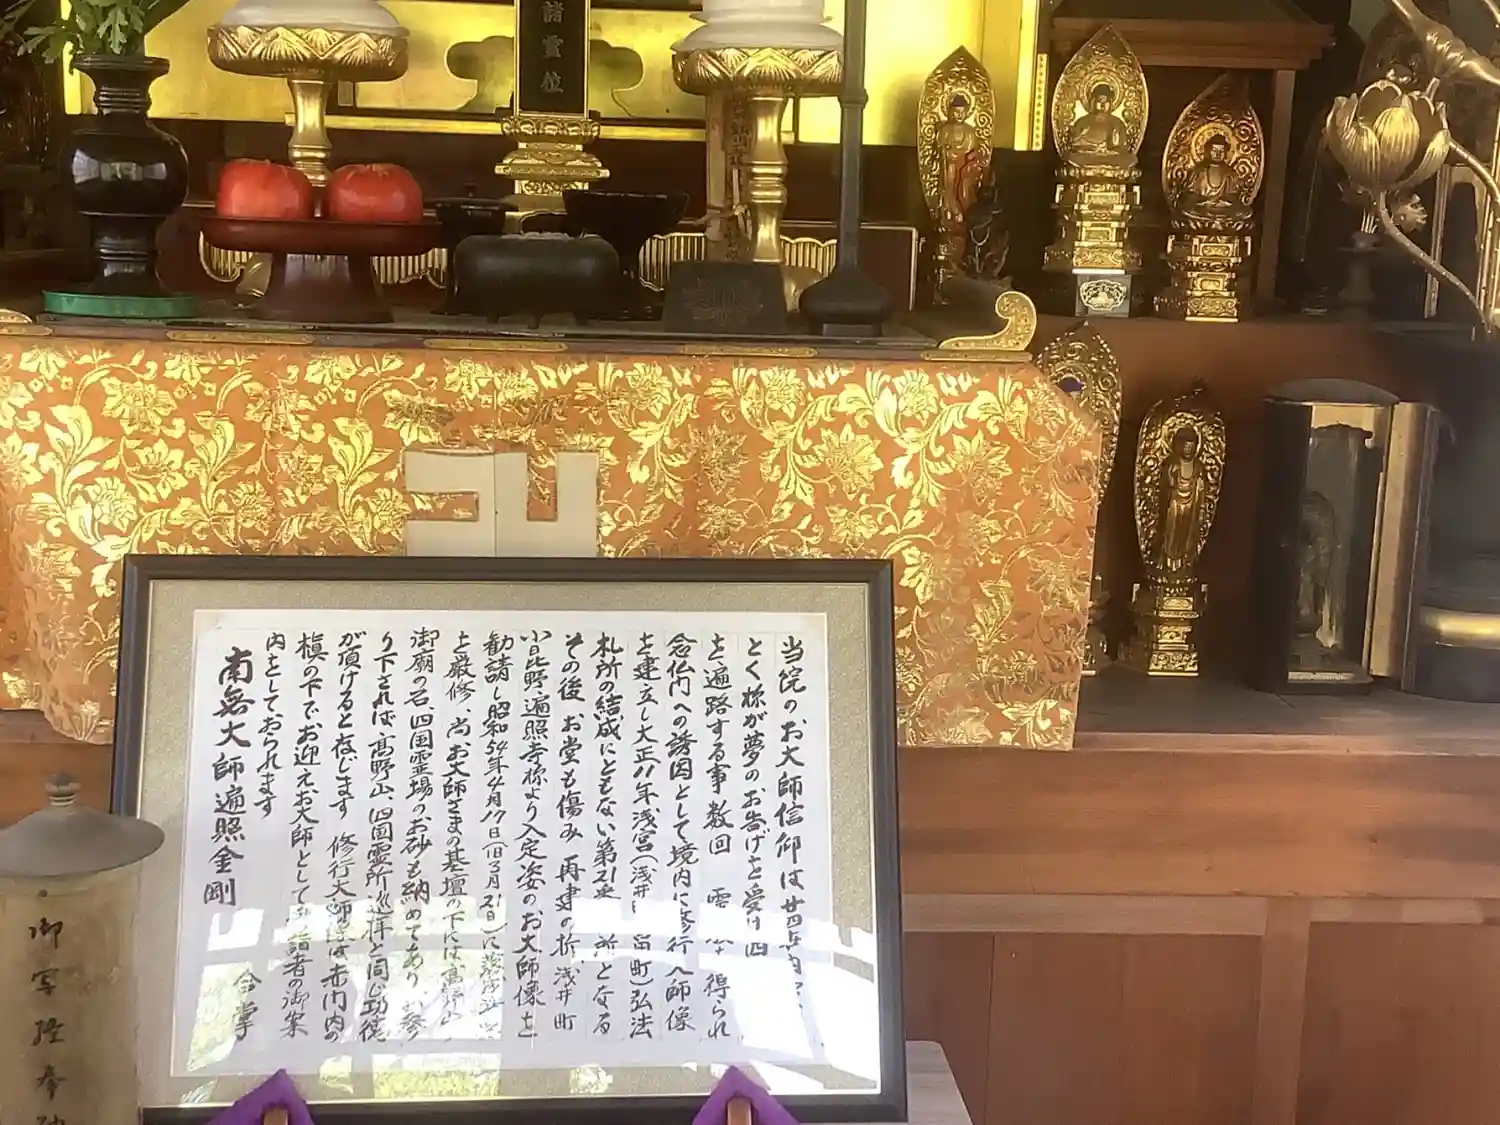 諸霊位
当院のお大師信仰は廿四
とく様が夢のお告げを受け四
を遍路する事数回 得られ
念仏門への誘因として境内に修行大師像
を建立し大正11年浅宮(浅井 苗町)弘法
札所の結成にともない第21番 所となる
その後 お堂も傷み 再建の折、浅井町
小日比野、遍照寺様より入定姿のお大師像を
勧請し昭和54年4月17日(旧3月21日)に
を厳修、尚お大師さまの基壇の下には、高野山
御廟の石、四国霊場のお砂も納めてあり、お参
り下されば、高野山、四国霊所巡拝と同じ功徳
が頂けると存じます 修行大師像は赤門内の
槇の下でお迎えお大師として参詣者の御案
内をしておられます
南無大師遍照金剛
合掌
御写経奉納